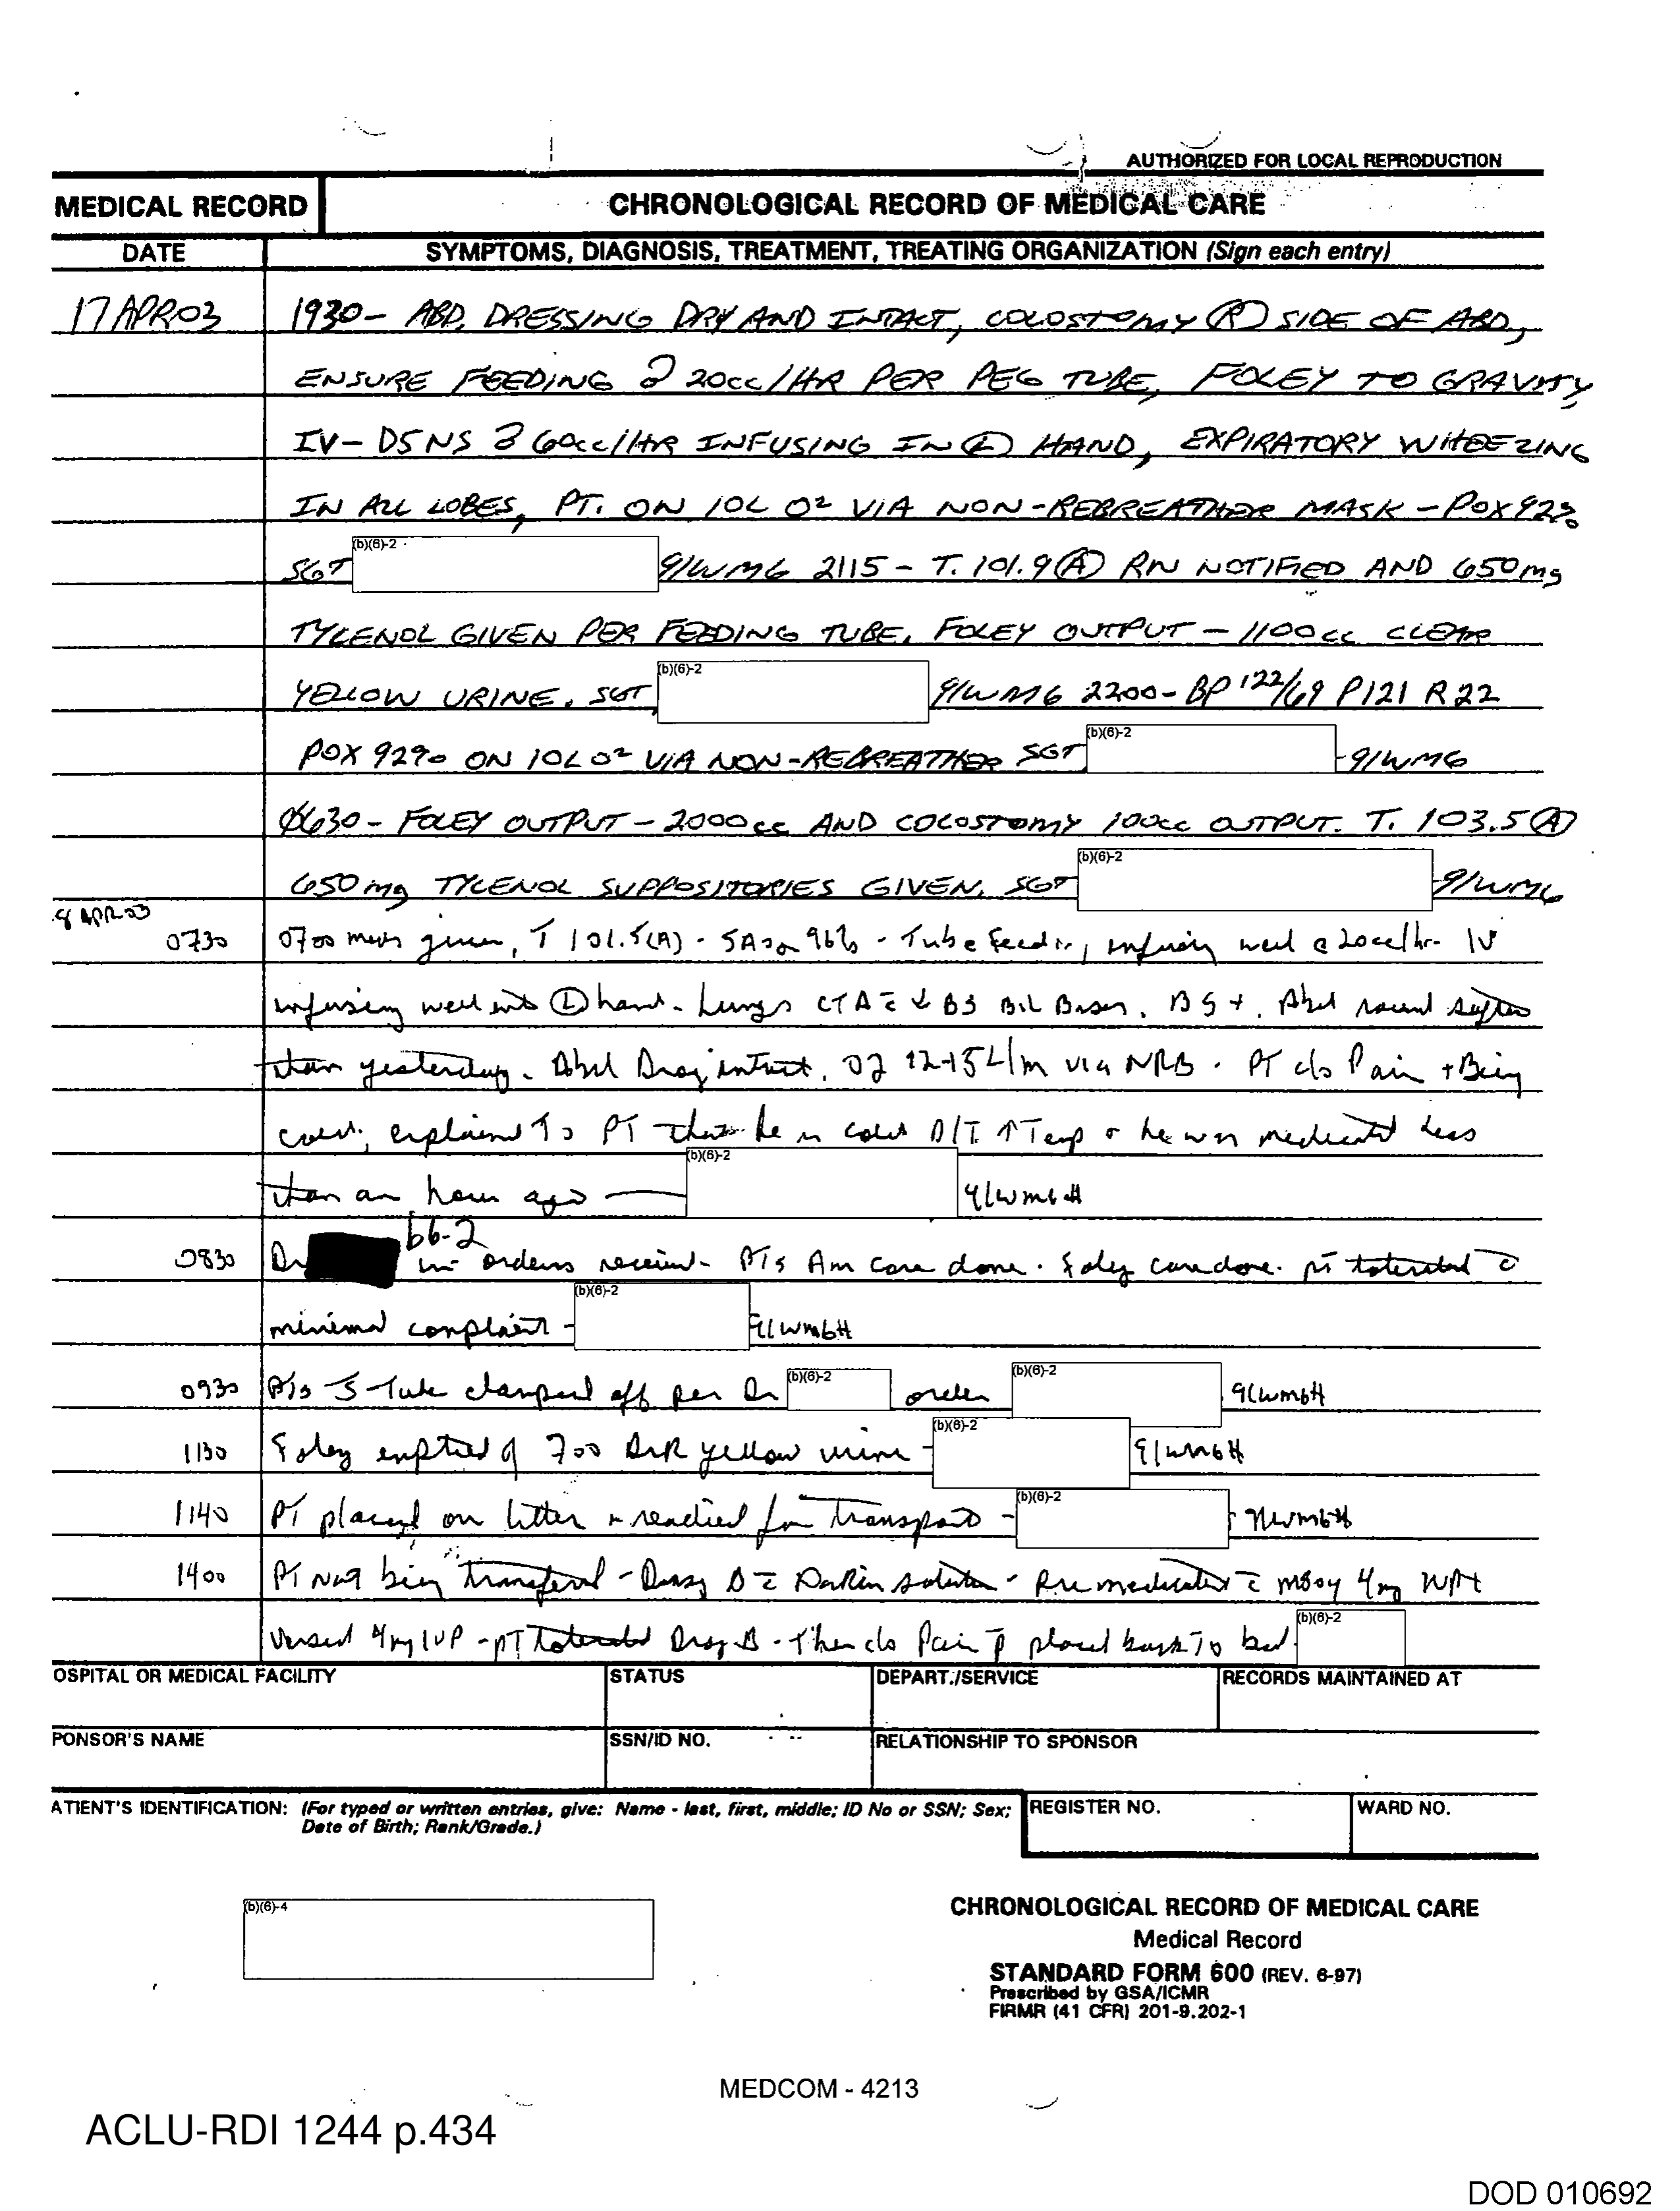 AUTHORIZED FOR LOCAL REPRODUCTION
MEDICAL RECORD
CHRONOLOGICAL RECORD OF MEDICAL CARE
DATE
SYMPTOMS, DIAGNOSIS, TREATMENT, TREATING ORGANIZATION (Sign each entry)
17 APR 03 1930- ABD. DRESSING DRY AND INTACT, COLOSTOMY (R) SIDE OF ABD,
ENSURE FEEDING @ 20cc/HR PER PEG TUBE, FOLEY TO GRAVITY
IV- D5NS @ 60cc/HR INFUSING IN (L) HAND, EXPIRATORY WHEEZING
IN ALL LOBES, PT. ON 10L O2 VIA NON-REBREATHER MASK - POX 92%
SGT (b)(6)-2 91WM6 2115 - T. 101.9 (A) RN NOTIFIED AND 650mg
TYLENOL GIVEN PER FEEDING TUBE. FOLEY OUTPUT - 1100cc CLEAR
YELLOW URINE. SGT (b)(6)-2 91WM6 2200- BP 122/69 P121 R22
POX 92% ON 10L O2 VIA NON-REBREATHER SGT (b)(6)-2 91WM6
0630- FOLEY OUTPUT - 2000cc AND COLOSTOMY 100cc OUTPUT. T. 103.5 (A)
650mg TYLENOL SUPPOSITORIES GIVEN. SGT (b)(6)-2 91WM6
8 APR 03
0730 0700 meds given, T 101.5(A) - SAO2 96% - Tube Feeding infusing well @ 20cc/hr. IV
infusing well into (L) hand - Lungs CTA c̄ ↓ BS Bil Bases. BS+. Abd softer
than yesterday - Abd Drsg intact. O2 12-15L/m via NRB. PT c/o Pain + Being
cold; explained to PT that he is cold D/T ↑ Temp + he was medicated less
than an hour ago (b)(6)-2 91WM6H
b6-2
0830 Dr in orders received - PTs Am care done. Foley care done. pt tolerated c̄
minimal complaint - (b)(6)-2 91WM6H
0930 PTs J-Tube clamped off per Dr (b)(6)-2 order (b)(6)-2 91WM6H
1130 Foley emptied of 700 DrK yellow urine - (b)(6)-2 91WM6H
1140 PT placed on litter + readied for transport - (b)(6)-2 91WM6H
1400 PT Not being transferred - Drsg Δ c̄ Dakin solution - Premedicated c̄ MSO4 4mg
Versed 4mg IVP - pT tolerated Drsg Δ - Then c/o Pain p̄ placed back To bed. (b)(6)-2
OSPITAL OR MEDICAL FACILITY
STATUS
DEPART./SERVICE
RECORDS MAINTAINED AT
PONSOR'S NAME
SSN/ID NO.
RELATIONSHIP TO SPONSOR
ATIENT'S IDENTIFICATION: (For typed or written entries, give: Name - last, first, middle; ID No or SSN; Sex;
Date of Birth; Rank/Grade.)
REGISTER NO.
WARD NO.
(b)(6)-4
CHRONOLOGICAL RECORD OF MEDICAL CARE
Medical Record
STANDARD FORM 600 (REV. 6-97)
Prescribed by GSA/ICMR
FIRMR (41 CFR) 201-9.202-1
MEDCOM - 4213
ACLU-RDI 1244 p.434
DOD 010692